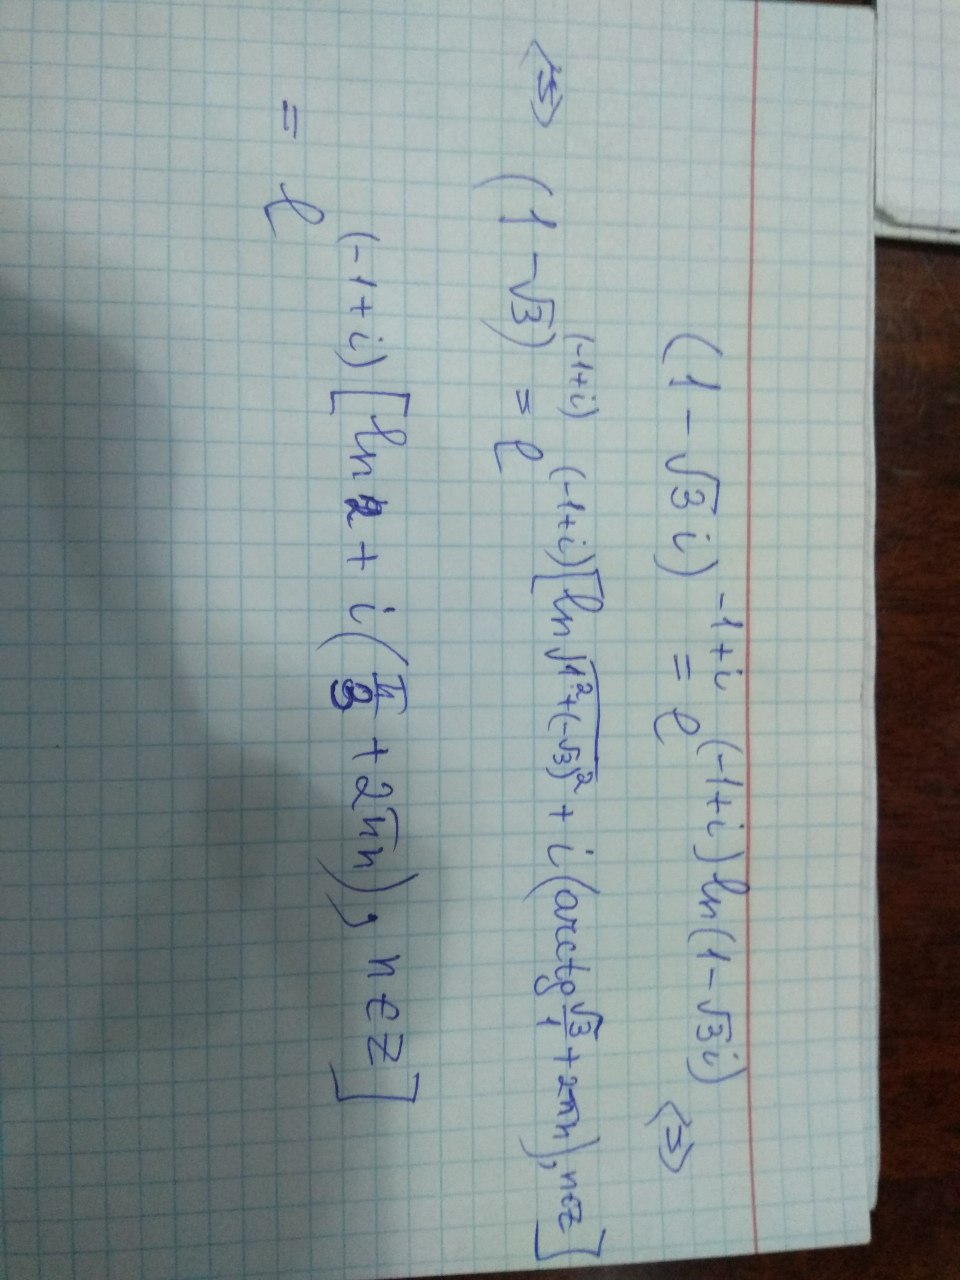 (1 - √3 i)^{-1+i} = e^{(-1+i) ln(1-√3 i)} ⇔
⇔ (1 - √3)^{(-1+i)} = e^{(-1+i)[ln √(1²+(-√3)²) + i(arctg √3/1 + 2πn), n∈Z]}
= e^{(-1+i)[ln 2 + i(π/3 + 2πn), n∈Z]}